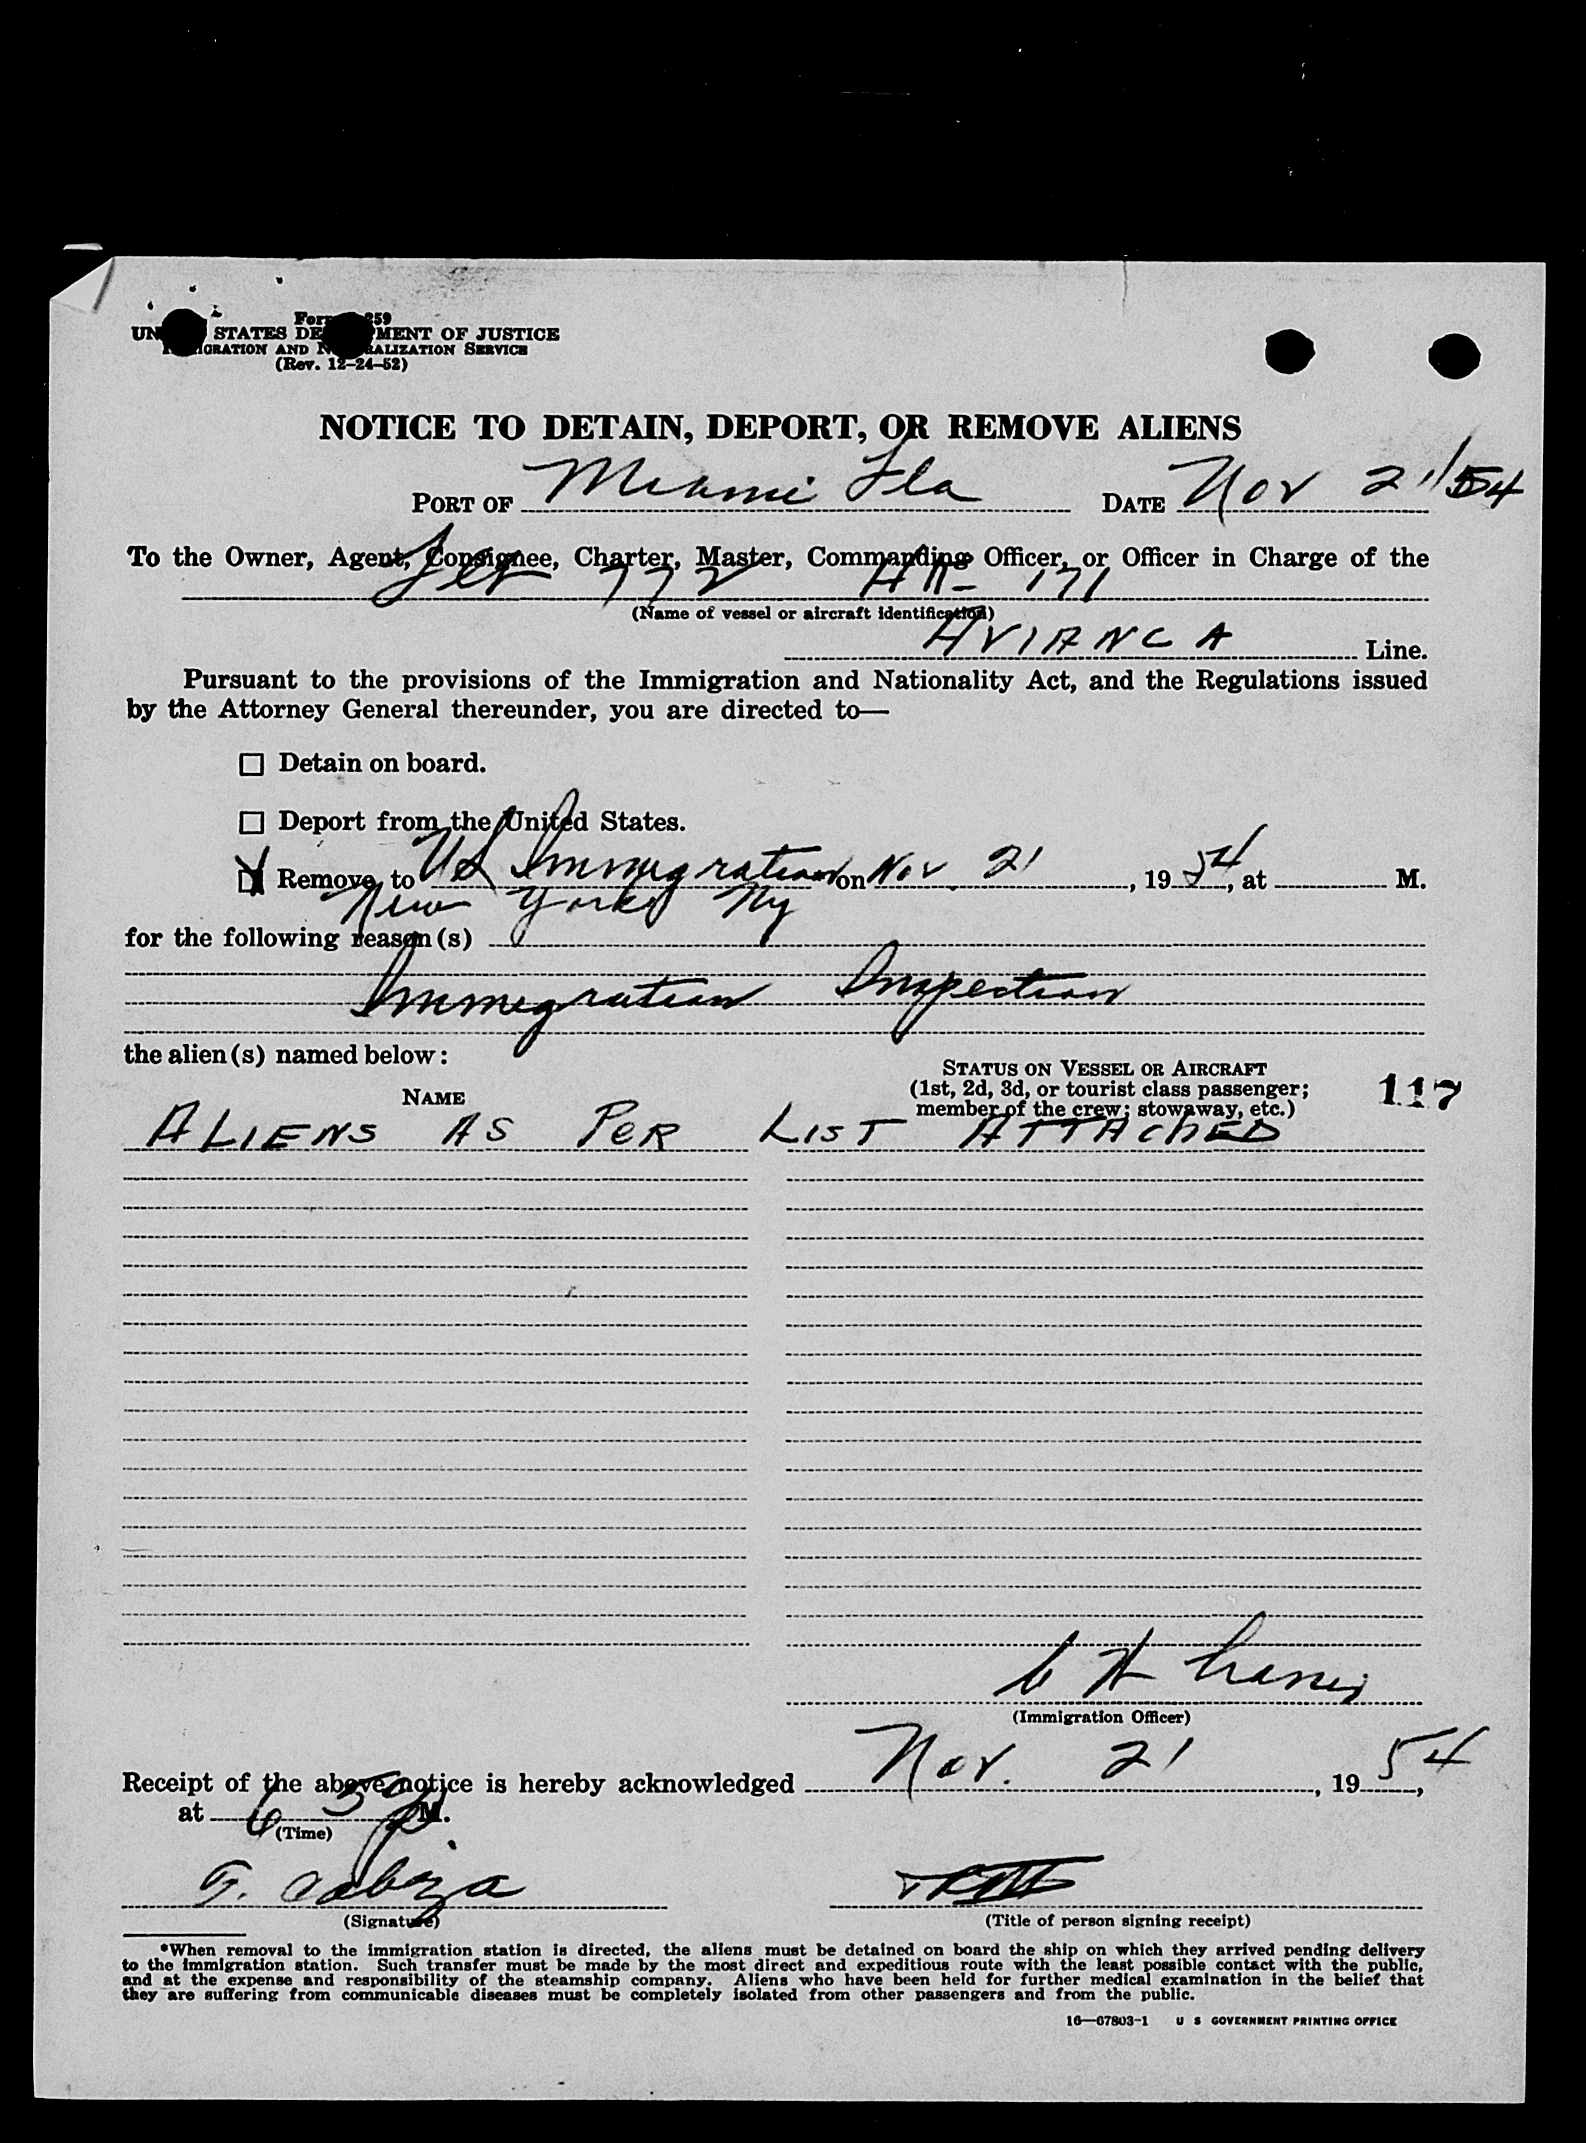 STATES
MENT OF JUSTICE
AND
SERVICE
(Rev. 12-24-52)
NOTICE TO DETAIN, DEPORT, OR REMOVE ALIENS
PORT OF Miami Fla DATE Nov 21/54
To the Owner, Agent, Consignee, Charter, Master, Commanding Officer, or Officer in Charge of the
772 171
(Name of vessel or aircraft identification)
AVIANCA Line.
Pursuant to the provisions of the Immigration and Nationality Act, and the Regulations issued
by the Attorney General thereunder, you are directed to—
☐ Detain on board.
☐ Deport from the United States.
Remove to US Immigration on Nov 21, 1954, at M.
New York NY
for the following reason(s)
Immigration Inspection
the alien(s) named below:
STATUS ON VESSEL OR AIRCRAFT
NAME (1st, 2d, 3d, or tourist class passenger;
member of the crew; stowaway, etc.) 117
ALIENS AS PER LIST ATTACHED
(Immigration Officer)
Receipt of the above notice is hereby acknowledged Nov. 21, 1954,
at 6 50 P M.
(Time)
(Signature) (Title of person signing receipt)
*When removal to the immigration station is directed, the aliens must be detained on board the ship on which they arrived pending delivery
to the immigration station. Such transfer must be made by the most direct and expeditious route with the least possible contact with the public,
and at the expense and responsibility of the steamship company. Aliens who have been held for further medical examination in the belief that
they are suffering from communicable diseases must be completely isolated from other passengers and from the public.
16—67803-1 U S GOVERNMENT PRINTING OFFICE